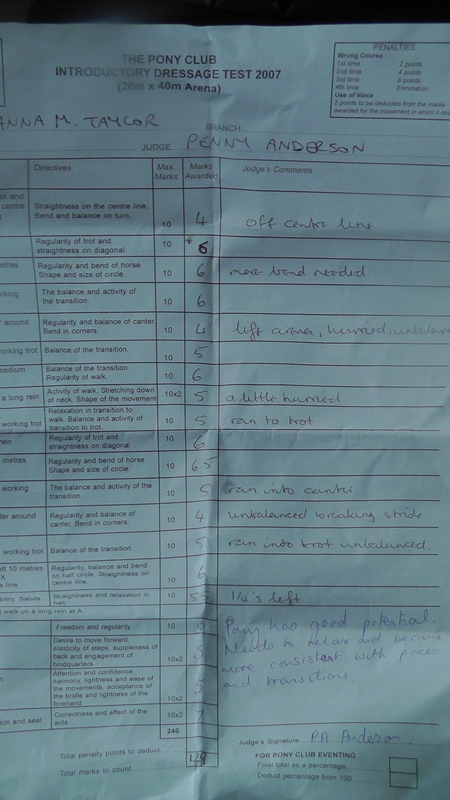 THE PONY CLUB
INTRODUCTORY DRESSAGE TEST 2007
(20m x 40m Arena)
PENALTIES
Wrong Course
1st time 2 points
2nd time 4 points
3rd time 8 points
4th time Elimination
Use of Voice
2 points to be deducted from the marks
awarded for the movement in which it
ANNA M. TAYLOR
BRANCH
JUDGE PENNY ANDERSON
Directives Max. Marks Marks Awarded Judge's Comments
and centre Straightness on the centre line. Bend and balance on turn. 10 4 off centre line
Regularity of trot and straightness on diagonal. 10 * 6
metres Regularity and bend of horse. Shape and size of circle. 10 6 more bend needed
The balance and activity of the transition. 10 6
around Regularity and balance of canter. Bend in corners. 10 4 left arena, hurried, unbalance
working trot Balance of the transition. 10 5
medium Balance of the transition. Regularity of walk. 10 6
a long rein Activity of walk. Stretching down of neck. Shape of the movement 10x2 5 a little hurried
working trot Relaxation in transition to walk. Balance and activity of transition to trot. 10 5 ran to trot
rein Regularity of trot and straightness on diagonal 10 6
metres Regularity and bend of horse. Shape and size of circle. 10 65
working The balance and activity of the transition. 10 5 ran into canter
around Regularity and balance of canter. Bend in corners. 10 4 unbalanced breaking stride
working trot Balance of the transition. 10 5 ran into trot unbalanced.
10 metres X line Regularity, balance and bend on half circle. Straightness on centre line. 10 6
Salute Straightness and relaxation in halt. 10 55 1/4's left.
walk on a long rein at A.
Freedom and regularity. 10 5 Pony has good potential.
Desire to move forward, elasticity of steps, suppleness of back and engagement of hindquarters 10x2 5 Needs to relax and become
Attention and confidence, harmony, lightness and ease of the movements, acceptance of the bridle and lightness of the forehand 10x2 5 more consistent with paces and transitions.
and seat Correctness and effect of the aids 10x2 7
240
Total penalty points to deduct
Total marks to count
Judge's Signature P.A. Anderson.
FOR PONY CLUB EVENTING
Final total as a percentage
Deduct percentage from 100